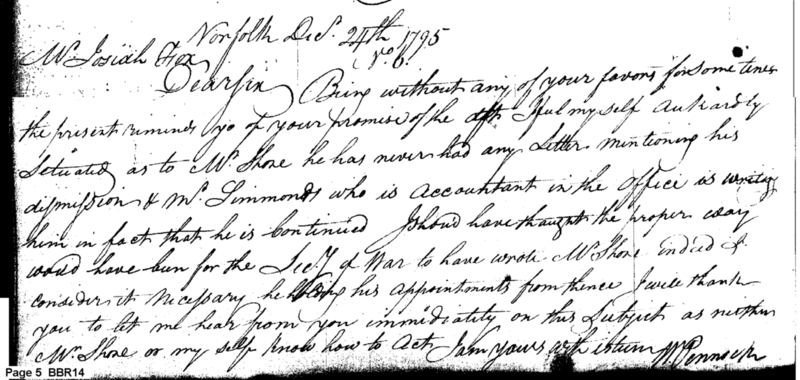 Norfolk Decr. 24th 1795
Mr Josiah Fox No. 6.
Dearsir Being without any of your favors for some times
the present reminds yo of your promise of the I feel my self Aukardly
Setuated as to Mr. Shore he has never had any Letter mentioning his
dismission & Mr. Simmonds who is accountant in the office is
him in fact that he is Continued I shoud have thaught the proper way
would have ben for the Secy of War to have wrote Mr Shore indeed I
consider it Necessary he his appointments from thence I will thank
you to let me hear from you immidiatity on this Subject as neither
Mr. Shore or my self know how to Act I am yours with esteem WPennock
Page 5 BBR14